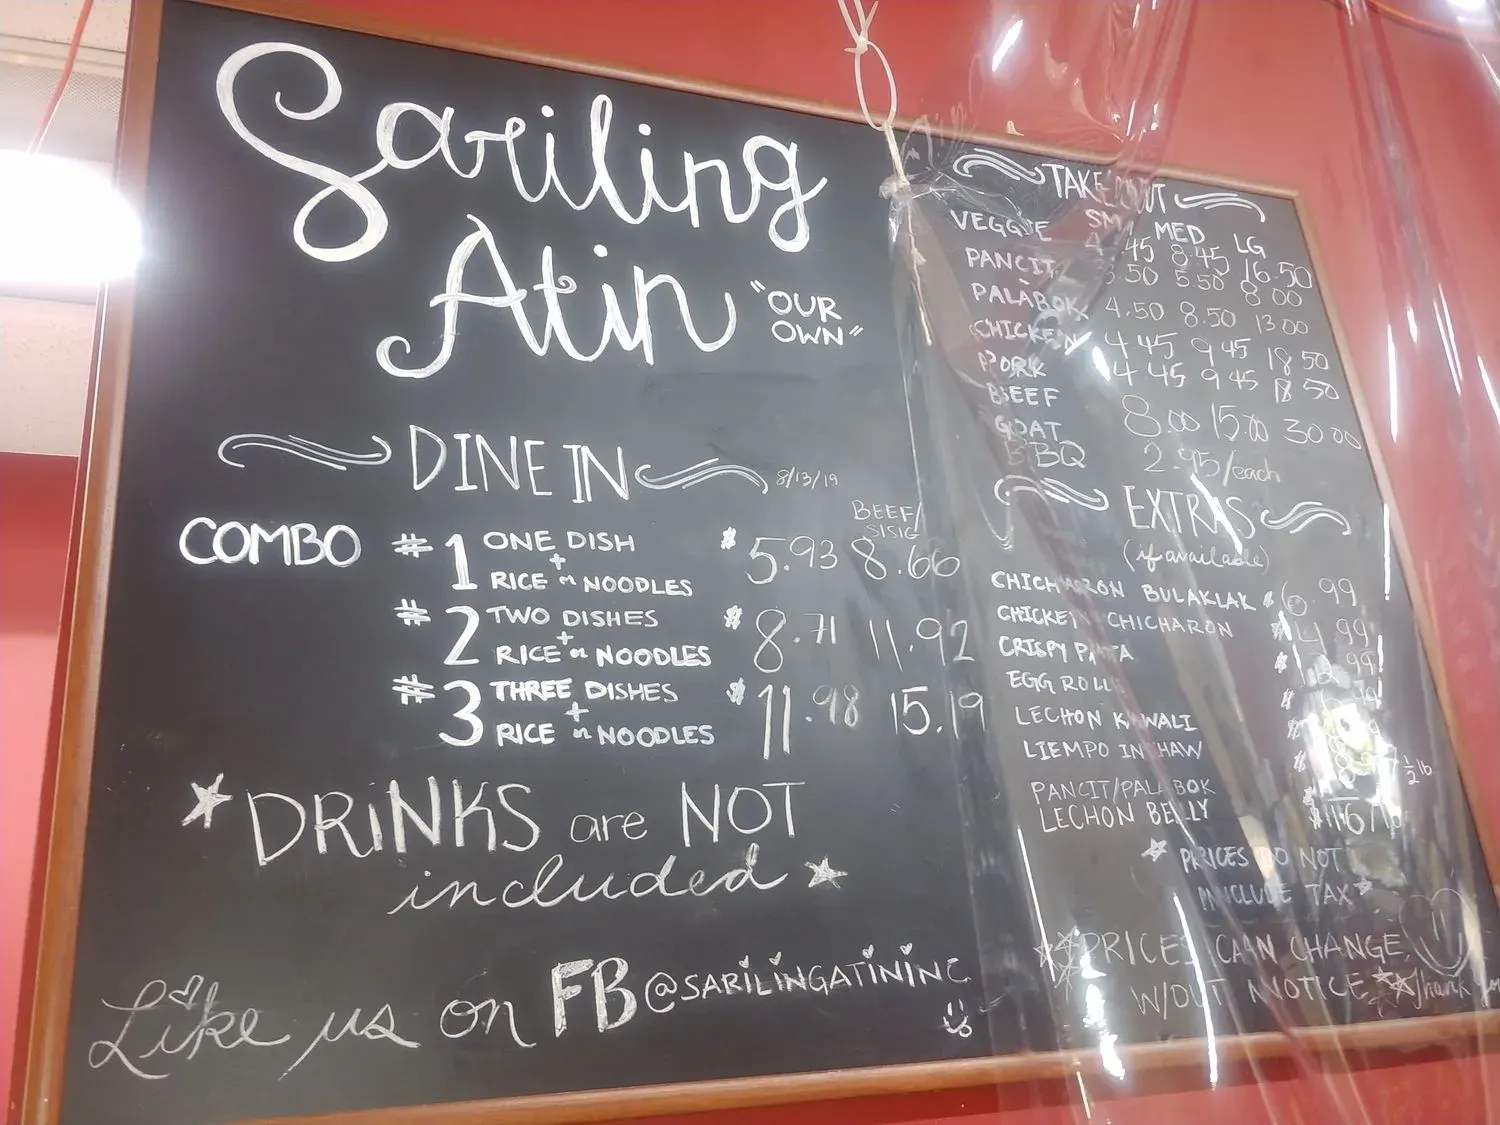 Sariling
Atin "OUR
OWN"
DINE IN 8/13/19
BEEF/
SISIG
COMBO #1 ONE DISH
+
RICE or NOODLES $5.93 8.66
#2 TWO DISHES
+
RICE or NOODLES $8.71 11.92
#3 THREE DISHES
+
RICE or NOODLES $11.98 15.19
*DRINKS are NOT
included*
Like us on FB @SARILINGATININC
TAKE OUT
SM MED LG
VEGGIE 4.45 8.45 16.50
PANCIT 3.50 5.50 8.00
PALABOK 4.50 8.50 13.00
CHICKEN 4.45 9.45 18.50
PORK 4.45 9.45 18.50
BEEF
GOAT 8.00 15.00 30.00
BBQ 2.95/each
EXTRAS
(if available)
CHICHARON BULAKLAK $6.99
CHICKEN CHICHARON $4.99
CRISPY PATA $
EGG ROLL $
LECHON KAWALI $
LIEMPO INIHAW $
PANCIT/PALABOK 1/2 lb
LECHON BELLY
*PRICES DO NOT
INCLUDE TAX*
**PRICES CAN CHANGE
W/OUT NOTICE** Thank you